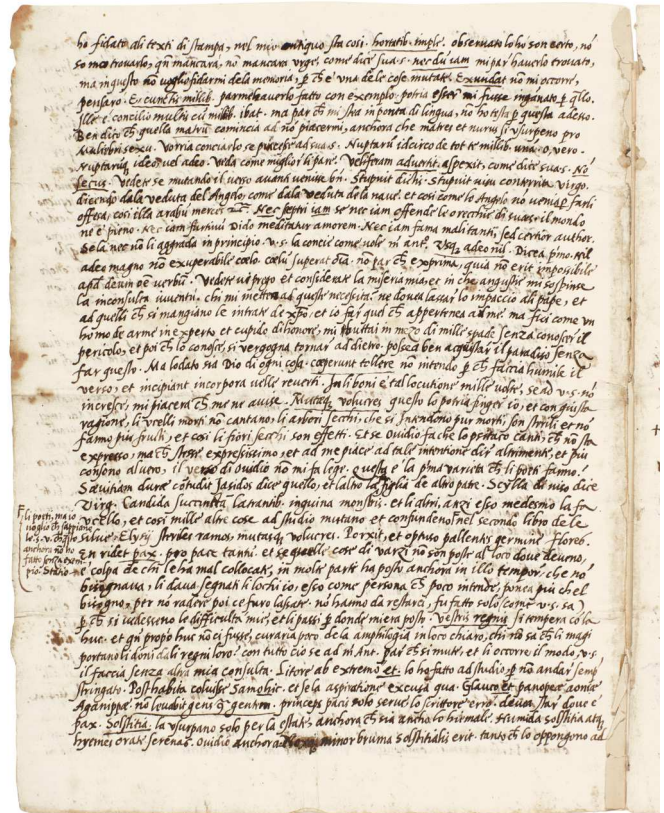 ho fidato ali texti di stampa, nel mio antiquo sta cosi. hortatib. imple. observato lo ho son certo, nō
so mo trovarlo, qn̄ mancara, nō mancara urge, come dice sua .s. nec dū iam mi par haverlo trovato,
ma in questo nō voglio fidarmi dela memoria, p ch̄ e una de le cose mutate. Exundat nō mi occorre,
pensaro. Ex cunctis milib. parme haverlo fatto con exemplo. potria esser mi fusse ingānato p q̄llo.
Ille e concilio multis cū milib. ibat. ma par ch̄ mi stia in ponta di lingua, nō ho testa p questa adesso.
Ben dico ch̄ quella matrū comincia ad nō piacermi, anchora che matres et nurus si usurpeno pro
muliebri sexu. Vorria conciarlo se piacesse ad sua .s. Nuptarū idcirco de tot te milib. una. o vero.
Nuptariq ideo vel adeo. Veda come miglior li pare. Veliferam advertit aspexit, come dite sua .s. Nō
secus. Vedete se mutando il verso avanti venisse bn̄. Stupuit dichi. Stupuit visu conterrita virgo.
dicendo dala veduta del Angelo, come dala veduta dela nave. et cosi come lo Angelo nō venia p farli
offesa, cosi illa arabū merces. Nec sceptri iam se nec iam offende le orecchie di sua .s. il mondo
ne e pieno. Nec iam furtivū Dido meditatur amorem. Nec iam fama mali tanti, sed certior author.
Se la nec nō li aggrada in principio. v. s. la concie come vole nī ant. Usq adeo nil. Dicea pīmo. Nil
adeo magno nō exuperabile coelo. coelū superat oīa. nō par ch̄ exprima, quia nō erit impossibile
apd̄ deum oē verbū. Vedete vi prego et considerate la miseria mia, et in che angustie mi sospinse
la inconsulta iuventù. chi mi metteva ad queste necessità. ne doveà lassar lo impaccio ali pape, et
ad quelli ch̄ si mangiano le intrate de xp̄o, et io far quel ch̄ appertenea ad me. ma fici come un
homo de arme inexperto et cupido di honore, mi buttai in mezo di mille spade senza conoscer il
pericolo, et poi ch̄ lo conosce, si vergogna tornar ad dietro. possea ben acquistar il paradiso senza
far questo. Ma lodato sia Dio di ogni cosa. coeperunt tollere nō intendo p ch̄ faccia humile il
verso, et incipiant incorpora velle reverti. In li boni e tal locutione mille volte, se ad v. s. nō
incresce, mi piacera ch̄ me ne avise. Mutaq volucres questo lo potria finger io, et con giusta
ragione, li ucelli morti nō cantano, li arbori secchi, che si intendono pur morti, son sterili et nō
fanno piu frutti, et cosi li fiori secchi son effetti. Et se Ovidio fa che lo psittaco canti, ch̄ nō sta
expresso, ma ch̄ stesse expresissimo, et ad me piace ad tale intentione dir altrimente, et piu
consono al vero, il verso di ovidio nō mi fa lege. questa e la p̄ma varieta ch̄ li poeti fanno!
Saevitiam durae cōtudit Iasidos dice quello, et l altro la figlia de altro patre. Scylla de niso dice
Virg. Candida succinctā latrantib. inguina monstris. et li altri, anzi esso medesmo la fa
ucello, et cosi mille altre cose ad studio mutano et confundeno nel secondo libro de le
li poeti. ma io
voglio ch̄ sappia
le .s. v. ch̄ q̄sto
anchora nō ho
fatto senza exem-
pio. Statio ne
salve. Elysij steriles ramos, mutasq volucres. Porxit, et optuso pallentes germine flores.
En ridet pax. pro pace tanti. et se quelle cose di varzi nō son poste al loco dove deveno,
e colpa de chi le ha mal collocate, in molte parte ha posto anchora in illo tempore, che nō
bisognava, li dava segnati li lochi io, esso come persona ch̄ poco intende, ponea piu ch el
bisogno, per nō radere poi ce furo lassate. nō hanno da restarci, fu fatto solo (come .v. s. sa)
p ch̄ si vedesseno le difficulta mie, et li passi p donde mi era posto. Vestris regnis si tempera cō la
huc. et qn̄ propō huc nō ci fusse, curaria poco de la amphilogia in loco chiaro, chi nō sa ch̄ li magi
portano li doni dali regni loro? con tutto cio se ad nī Ant. par ch̄ si mute, et li occorre il modo .v. s.
il faccia senza altra mia consulta. Litore ab extremo et. lo ho fatto ad studio, p nō andar semp̄
stringato. Posthabita coluisse Samo hic. et se la aspiratione excusa qua. Glauco et panopeae aoniae
Aganippae nō levabit gens & gentem. princeps pacis solo serve lo scrittore erro. devea star dove e
pax. Solstitia. la usurpano solo per la estate, anchora ch̄ sia ancho lo hiemale. Humida solstitia atq
hyemes orate serenas. Ovidio anchora minor bruma solstitialis erit. tanto ch̄ lo oppongono ad